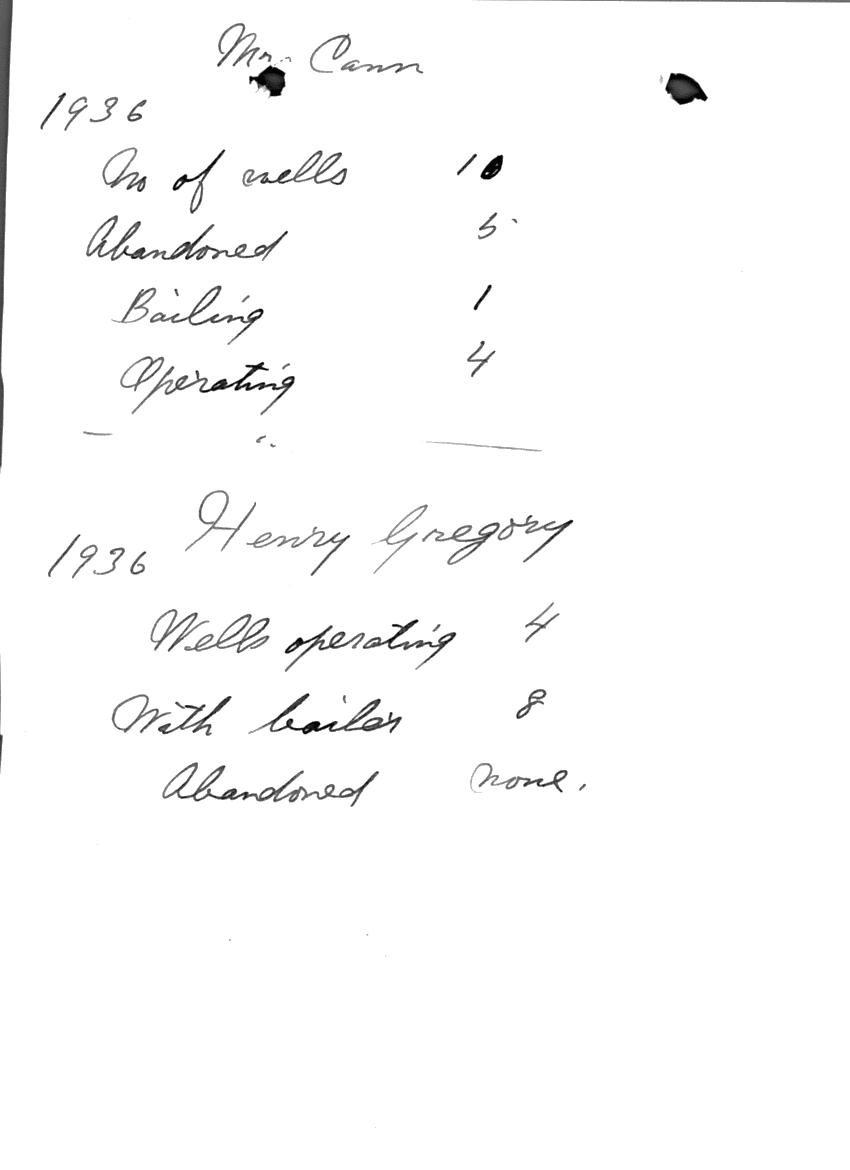 Mr. Cann
1936
No of wells 10
Abandoned 5
Bailing 1
Operating 4
— " —
Henry Gregory
1936
Wells operating 4
With bailer 8
Abandoned none.